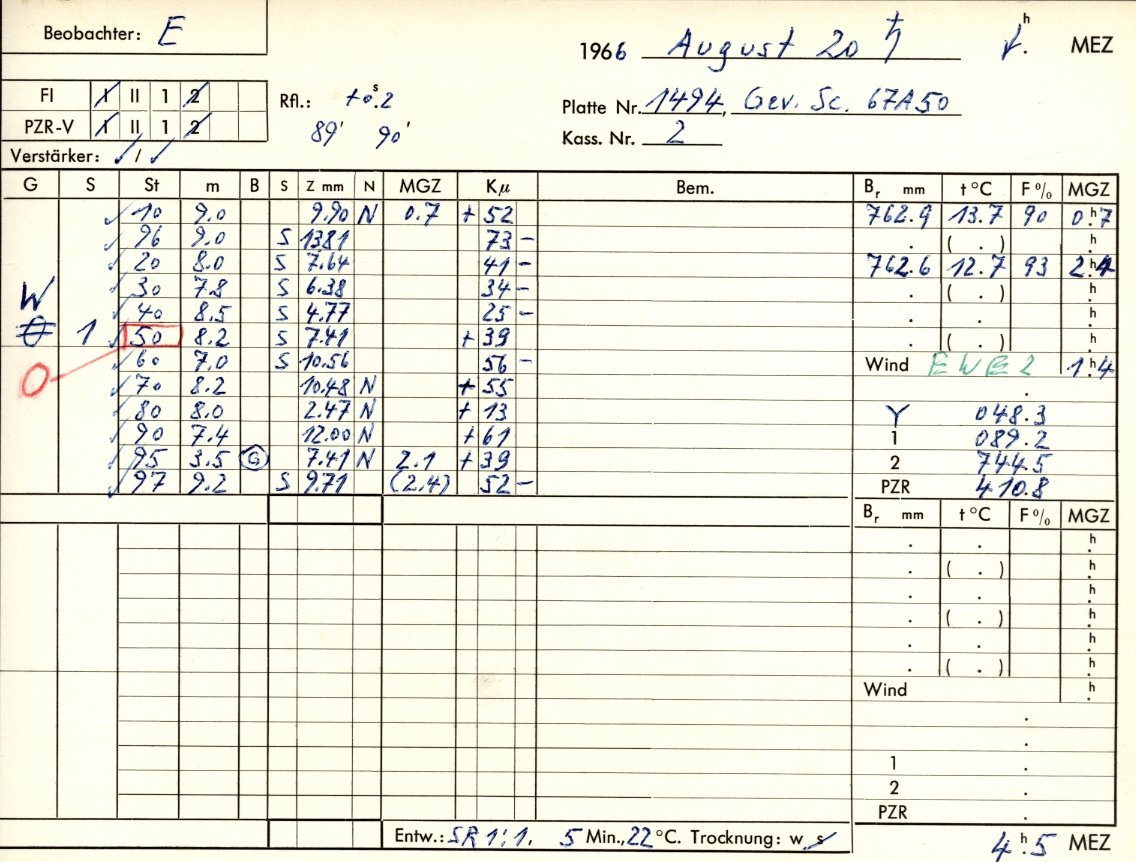 Beobachter: E
1966 August 20 ♄ h. MEZ
FI I II 1 2
PZR-V I II 1 2
Verstärker: /
Rfl.: +0.s2
89' 90'
Platte Nr. 1494, Gev. Sc. 67A50
Kass. Nr. 2
G S St m B S Z mm N MGZ Kμ Bem.
10 9.0 9.90 N 0.7 + 52
96 9.0 S 13.81 73 -
20 8.0 S 7.64 41 -
30 7.8 S 6.38 34 -
W
40 8.5 S 4.77 25 -
O 1 50 8.2 S 7.41 + 39
60 7.0 S 10.56 56 -
O
70 8.2 10.48 N + 55
80 8.0 2.47 N + 13
90 7.4 12.00 N + 61
95 3.5 G 7.41 N 2.1 + 39
97 9.2 S 9.71 (2.4) 52 -
Br mm t °C F % MGZ
762.9 13.7 90 0.h7
. ( . ) .h
762.6 12.7 93 2.h4
. ( . ) .h
. .h
. ( . ) .h
Wind EWE2 1.h4
.
Y 048.3
1 089.2
2 744.5
PZR 410.8
Br mm t °C F % MGZ
. . .h
. ( . ) .h
. . .h
. ( . ) .h
. . .h
. ( . ) .h
Wind .h
.
.
1 .
2 .
PZR .
Entw.: SR 1:1, 5 Min., 22 °C. Trocknung: w, s
4.h5 MEZ